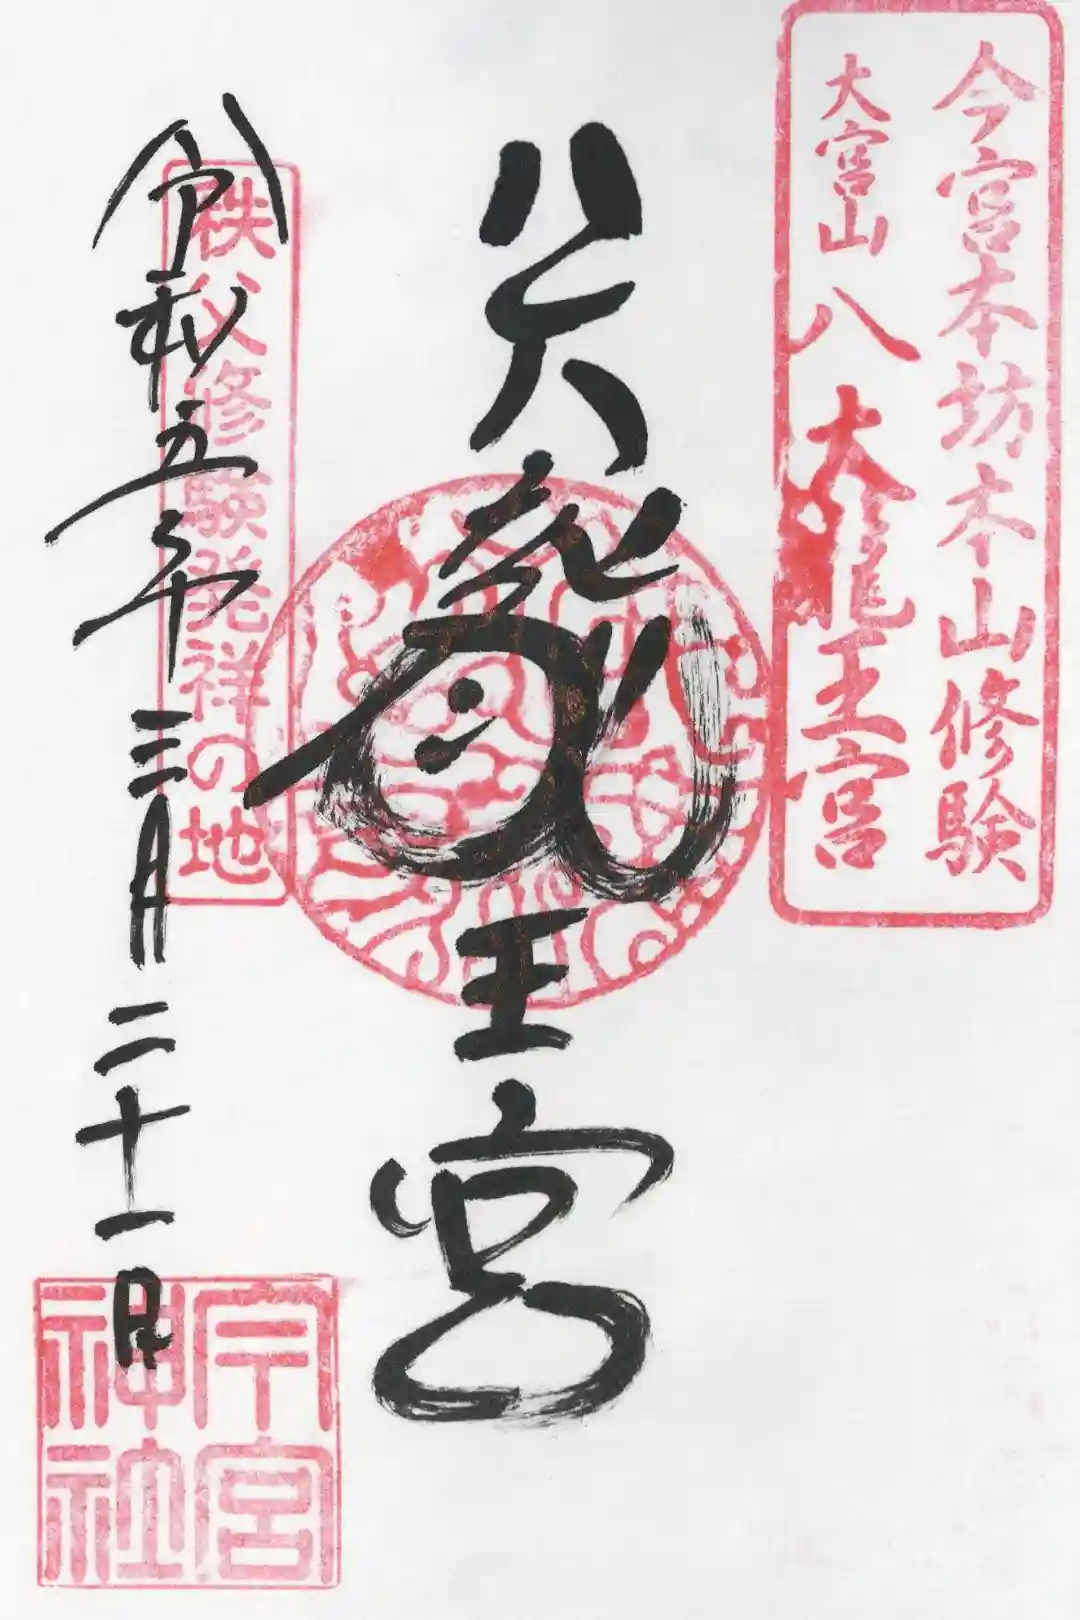 今宮本坊本山修験
大宮山 八大龍王宮
八大龍王宮
秩父修験発祥の地
令和五年 三月 二十一日
今宮
神社